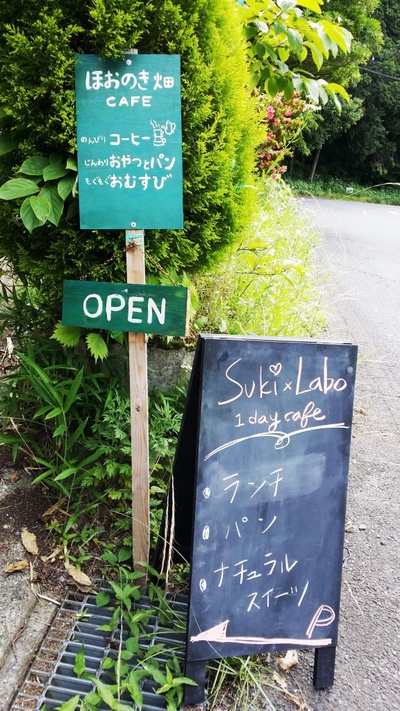 ほおのき畑
CAFE
のんびり コーヒー
じんわり おやつとパン
もぐもぐ おむすび
OPEN
Suki × Labo
1 day cafe
ランチ
パン
ナチュラル
スイーツ
P